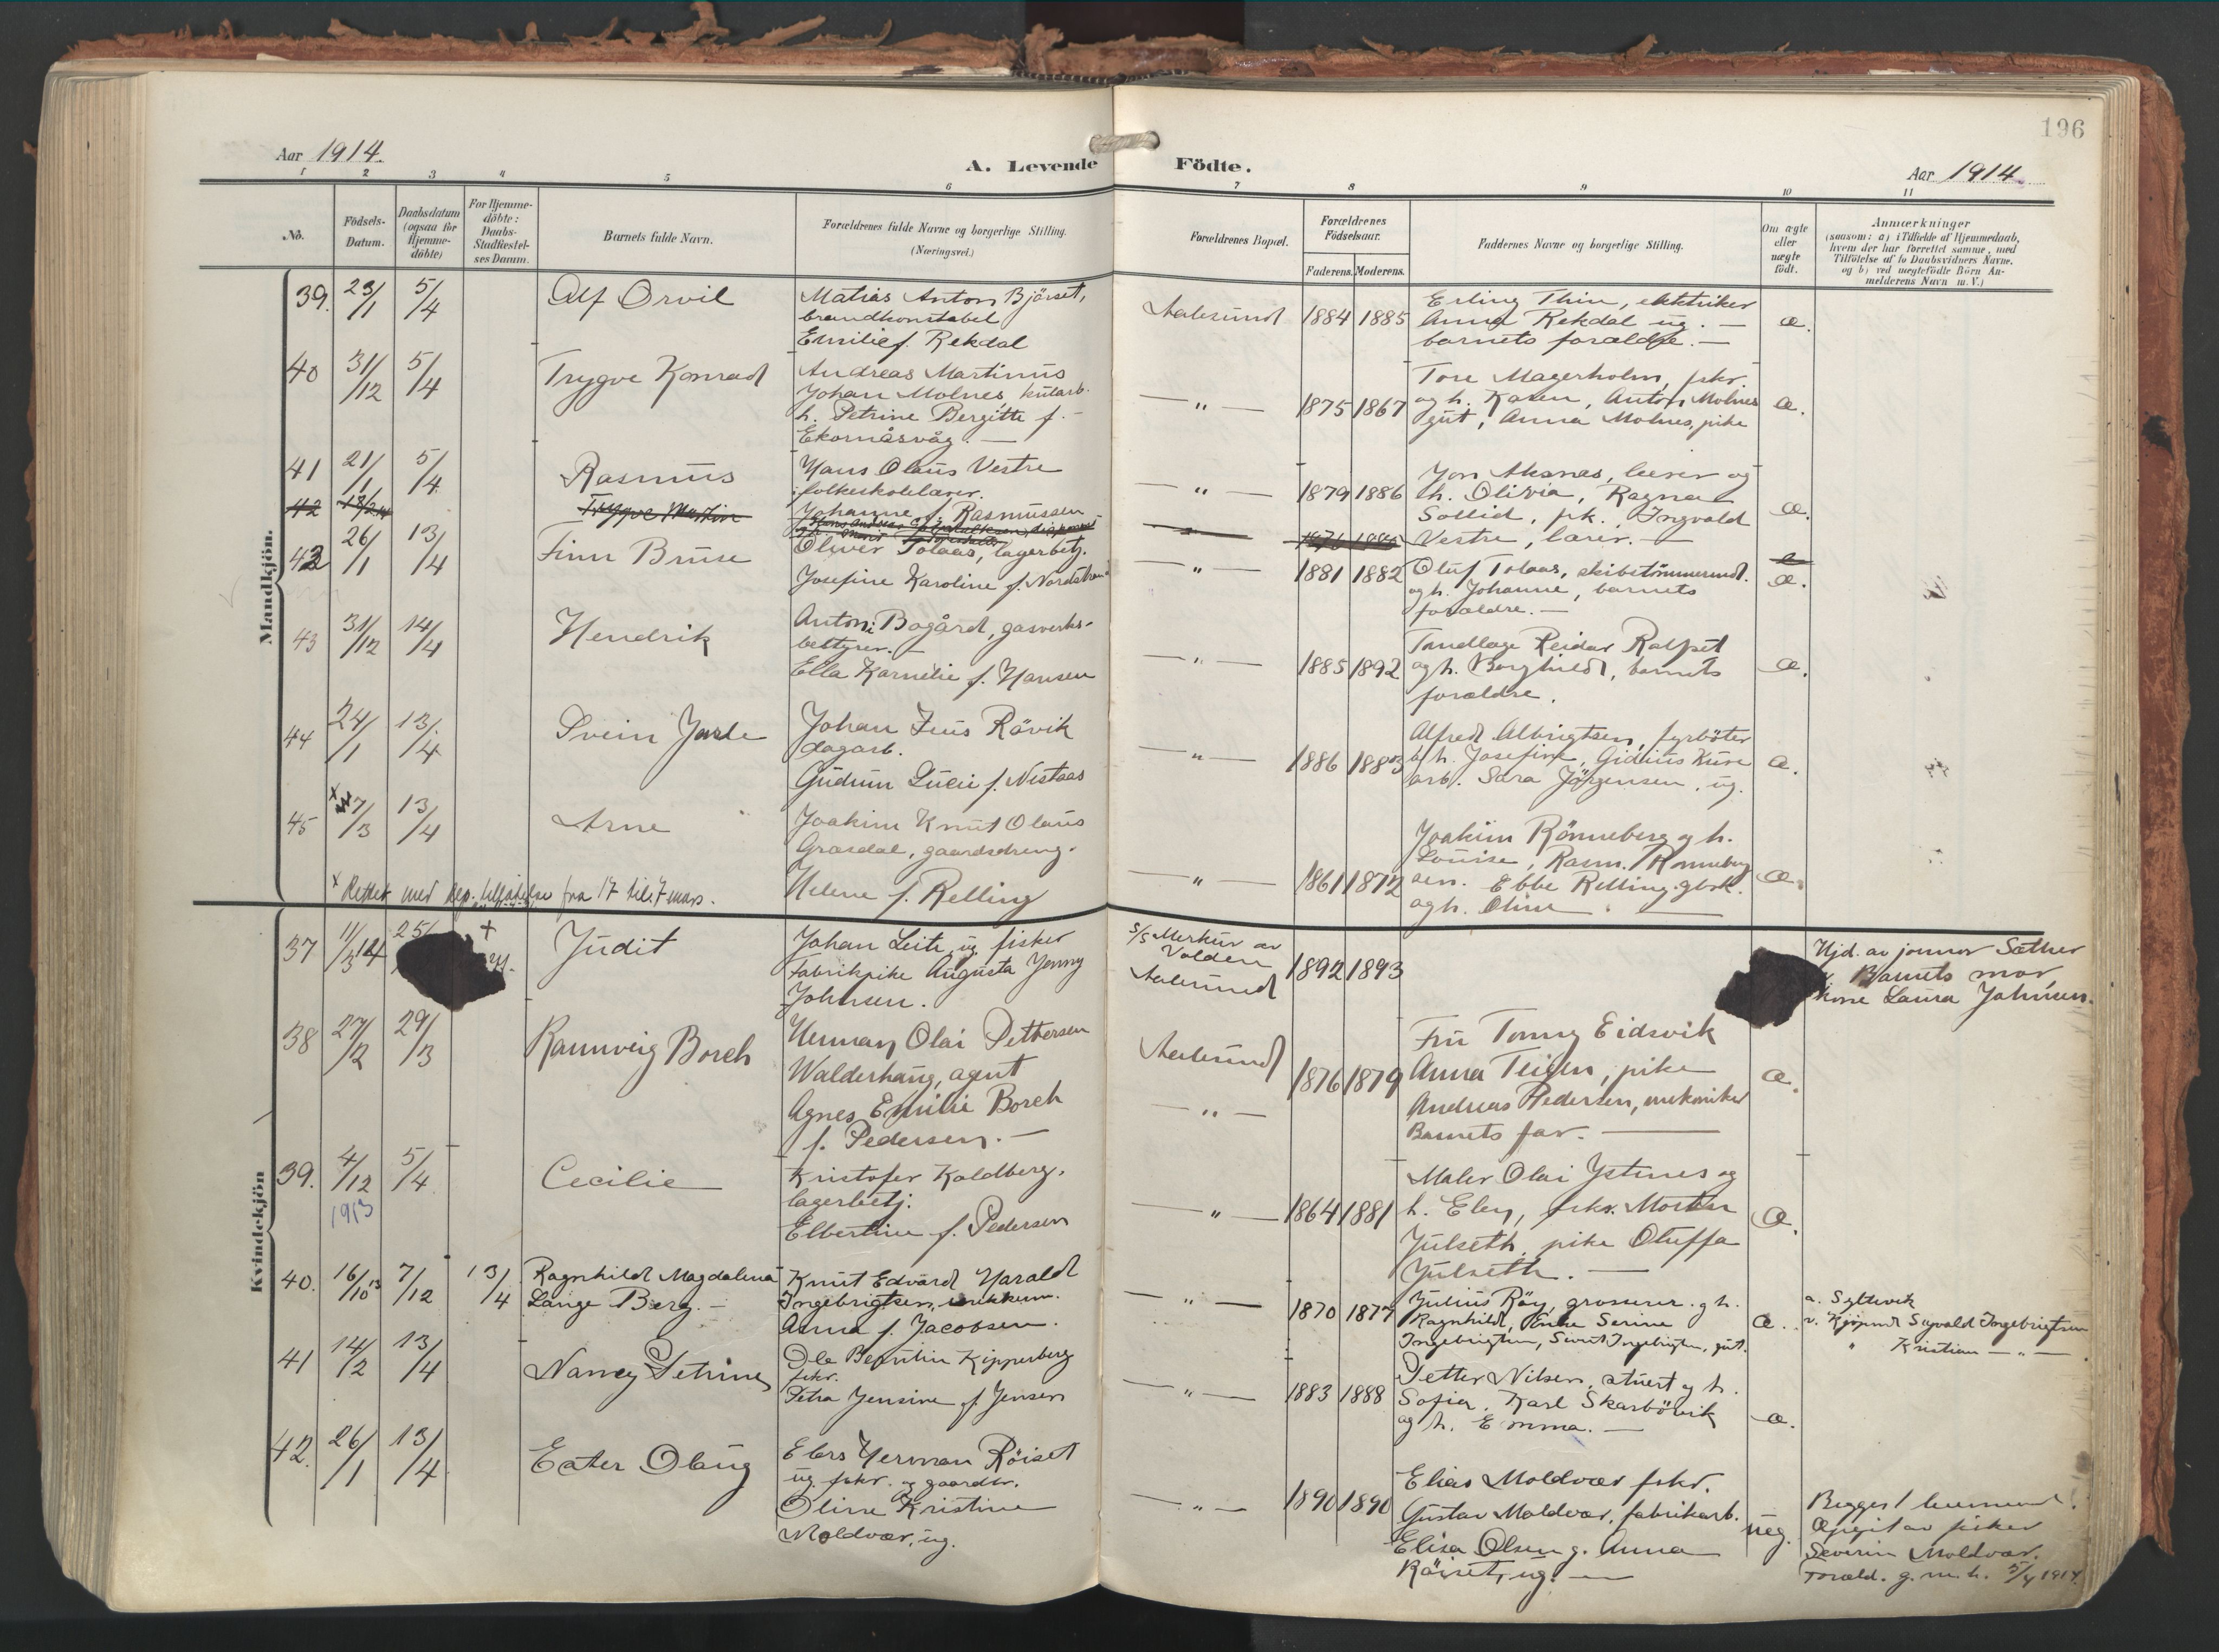 196
Aar 1914.
A. Levende Födte.
Aar 1914.
1 2 3 4 5 6 7 8 9 10 11
No.
Födsels-
Datum.
Daabsdatum
(ogsaa for
Hjemme-
döbte)
For Hjemme-
döbte:
Daabs-
Stadfæstel-
ses Datum.
Barnets fulde Navn.
Forældrenes fulde Navne og borgerlige Stilling.
(Næringsvei.)
Forældrenes Bopæl.
Forældrenes
Födselsaar.
Faderens. Moderens.
Faddernes Navne og borgerlige Stilling.
Om ægte
eller
uægte
födt.
Anmærkninger
(saasom: a) i Tilfælde af Hjemmedaab,
hvem der har forrettet samme, med
Tilföielse af to Daabsvidners Navne.
og b) ved uægtefödte Börn An-
melderens Navn m. V.)
Mandkjön.
39. 23/1 5/4 Alf Orvil
Matias Anton Bjørset,
brandkonstabel
Emilie f. Rekdal
Aalesund 1884 1885
Erling Thin, elektriker
Anna Rekdal ug. —
barnets forældre. —
æ.
40 31/12 5/4 Trygve Konrad
Andreas Martinus
Johan Molnes, kularb.
h. Petrine Bergitte f. -
Ekornåsvåg. —
— " — 1875 1867
Tore Magerholm, fskr.
og h. Karen, Anton Molnes
gut, Anna Molnes, pike
æ.
41 21/1 5/4 Rasmus
Hans Olaus Vestre
folkeskolelærer.
Johanne f. Rasmussen
— " — 1879 1886
Jon Aksnes, lærer og
h. Olivia, Ragna
Sollid, pk. Ingvald
Vestre, lærer. —
æ.
42 Trygve Martin
42 26/1 13/4 Finn Bruse
Oliver Tolaas, lagerbetj.
Josefine Karoline f. Nordstrand
— " — 1881 1882
Oluf Tolaas, skibstömmermd.
og h. Johanne, barnets
forældre. —
æ.
43 31/12 14/4 Hendrik
Anton Bogård, gasverks-
bestyrer. —
Ella Kornelie f. Hansen
— " — 1885 1892
Tandlæge Reidar Ralfset
og h. Borghild, barnets
forældre.
æ.
44 24/1 13/4 Svein Jarle
Johan Zeus Rövik
dagarb.
Gudrun Lucie f. Nistaas
— " — 1886 1883
Alfred Albrigtsen, fyrböter
og h. Josefine, Gidius Kure
arb. Sara Jörgensen, ug.
æ.
45 x 7/3 13/4 Arne
Joakim Knut Olaus
Grasdal, gaardsdreng.
Helene f. Relling
— " — 1861 1872
Joakim Rönneberg og h.
Louise, Rasm. Rönneberg
sen. Ebbe Relling gbrk.
og h. Oline. —
æ.
x Rettet med dep. tilladelse fra 17 til 7 mars.
Kvindekjön
37 11/3 14 25/ + Judit
Johan Leite, ug. fisker
Fabrikpike Augusta Jenny
Johnsen.
S/S Merkur av
Volden
Aalesund
1892 1893
Hjd. av jormor Sæther
Barnets mor
kone Laura Johnsen.
38 27/2 29/3 Rannveig Borch
Herman Olai Pettersen
Walderhaug, agent
Agnes Emilie Borch
f. Pedersen. —
Aalesund
— " —
1876 1879
Fru Tonny Eidsvik
Anna Teigen, pike
Andreas Pedersen, mekaniker
Barnets far. —
æ.
39. 4/12 1913 5/4 Cecilie
Kristofer Koldberg,
lagerbetj.
Elbertine f. Pedersen
— " — 1864 1881
Maler Olai Ystenes og
h. Elen, fskr. Morten
Julseth, pike Oluffa
Julseth. —
æ.
40. 16/10 13 7/12 13/4 Ragnhild Magdalena
Lange Berg. —
Knut Edvard Harald
Ingebrigtsen,
Anna f. Jacobsen.
— " — 1870 1877
Julius Röy, grosserer. g h.
Ragnhild, Enke Serine
Ingebrigtsen, Sivert Ingebrigtsen, gut.
æ.
a. Syltevik
v. Kjøpmd Sigvald Ingebrigtsen
" Kristian — " —
41 14/2 13/4 Nancy Petrine
Ole Berntin Kipperberg
fskr.
Petra Jensine f. Jensen
— " — 1883 1888
Petter Nilsen, stuert og h.
Sofia, Karl Skarbövik
og h. Emma. —
æ.
42. 26/1 13/4 Ester Olaug
Elers Herman Röiset
ug. fskr. og gaardbr.
Oline Kristine
Moldvær, ug.
— " — 1890 1890
Elias Moldvær fskr.
Gustav Moldvær, fabrikarb.
Elisa Olsen g. Anna
Röiset, ug. —
uæg.
Begges 1
Opgit av fisker
Severin Moldvær.
Foræld. g. m. h. 5/4 1914.